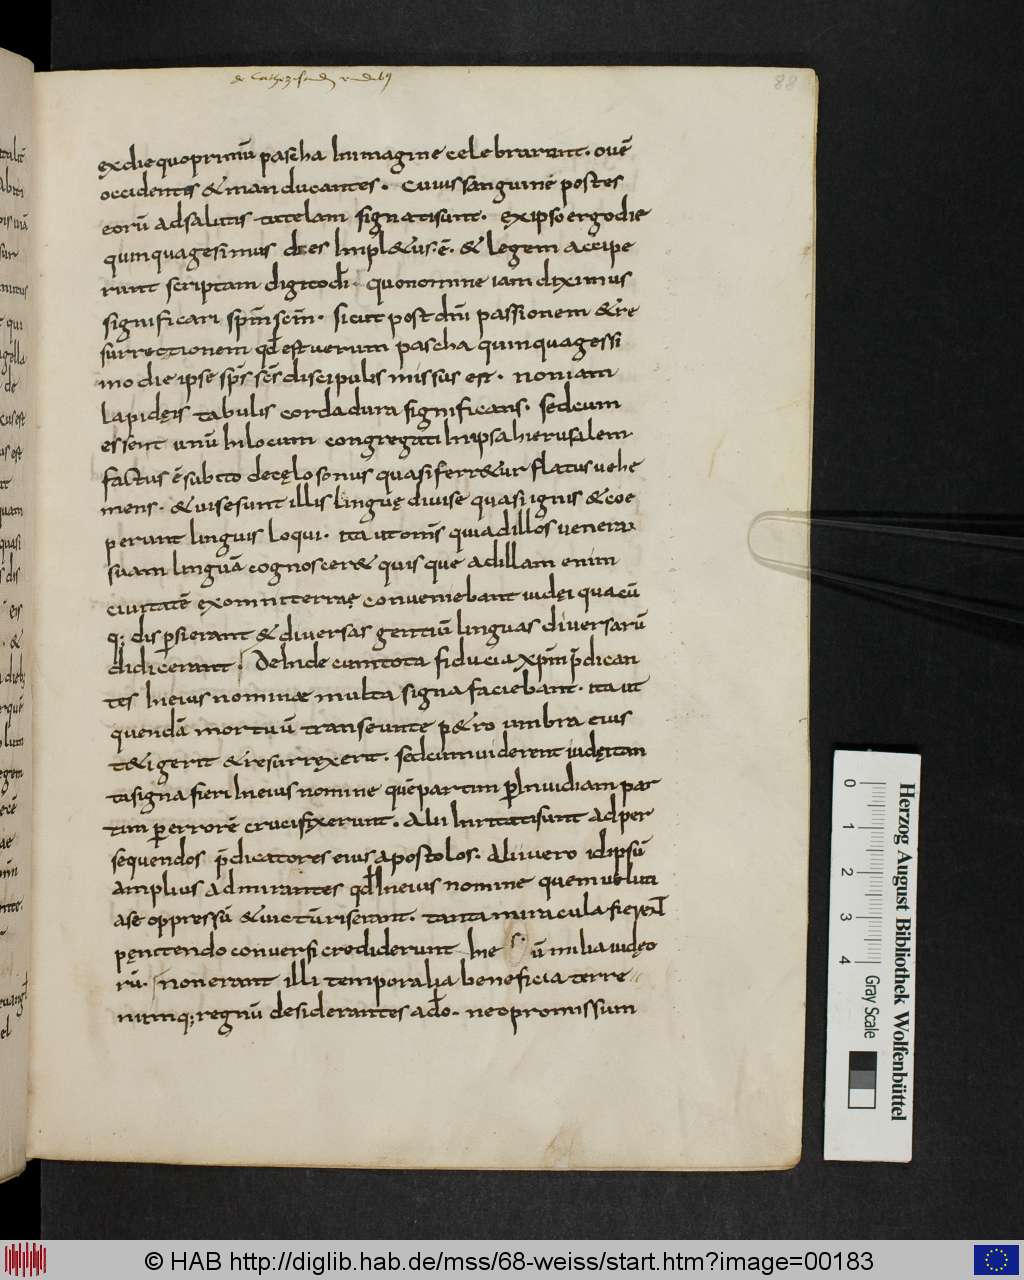 de Cathezisandis rudibus
88
ęx die quo primū pascha In imagine celebrarant. ouē
occidentes & manducantes. cuius sanguine postes
eorū ad salutis tutelam signati sunt. ęx ipso ergo die
quinquagesimus dies Impl&us ē. & legem accipe
runt scriptam digito dī. quo nomine iam diximus
significari spm̄ scm̄. sicut post dn̄i passionem & re
surrectionem qđ est uerum pascha quinquagessi
mo die ipse sps̄ scs̄ discipulis missus est. non iam
lapidęis tabulis corda dura significans. sed cum
essent unū In locum congregati In ipsa hierusalem
factus ē subito de cęlo sonus quasi ferr&ur flatus uehe
mens. & uise sunt illis linguę diuise quasi ignis & coe
perunt linguis loqui. ita ut om̄s qui ad illos uenerant
suam linguā cognoscer& quisque ad illam enim
ciuitatē ęx omni terrae conueniebant iudęi quacū
q; dispersi erant & diuersas gentiū linguas diuersarū
didicerant. Deinde cum tota fiducia xp̄m p̄dican
tes In eius nominae multa signa faciebant. ita ut
quendā mortuū transeunte p&ro umbra eius
t&igerit & resurręxerit. sed cum uiderent iudęi tan
ta signa fieri In eius nomine quē partim p Inuidiam par
tim p errorē crucifixerunt. Alii Inritati sunt ad per
sequendos p̄dicatores eius apostolos. Alii uero id ipsū
amplius admirantes qđ In eius nomine quem ueluti
a se oppressū & uictū riserant. tanta miracula fierent
pęnitendo conuersi crediderunt In eū milia iudęo
rū. non erant illi temporalia beneficia terre
numq; regnū desiderantes a do. nec promissum
0 1 2 3 4
Gray Scale
Herzog August Bibliothek Wolfenbüttel
© HAB http://diglib.hab.de/mss/68-weiss/start.htm?image=00183